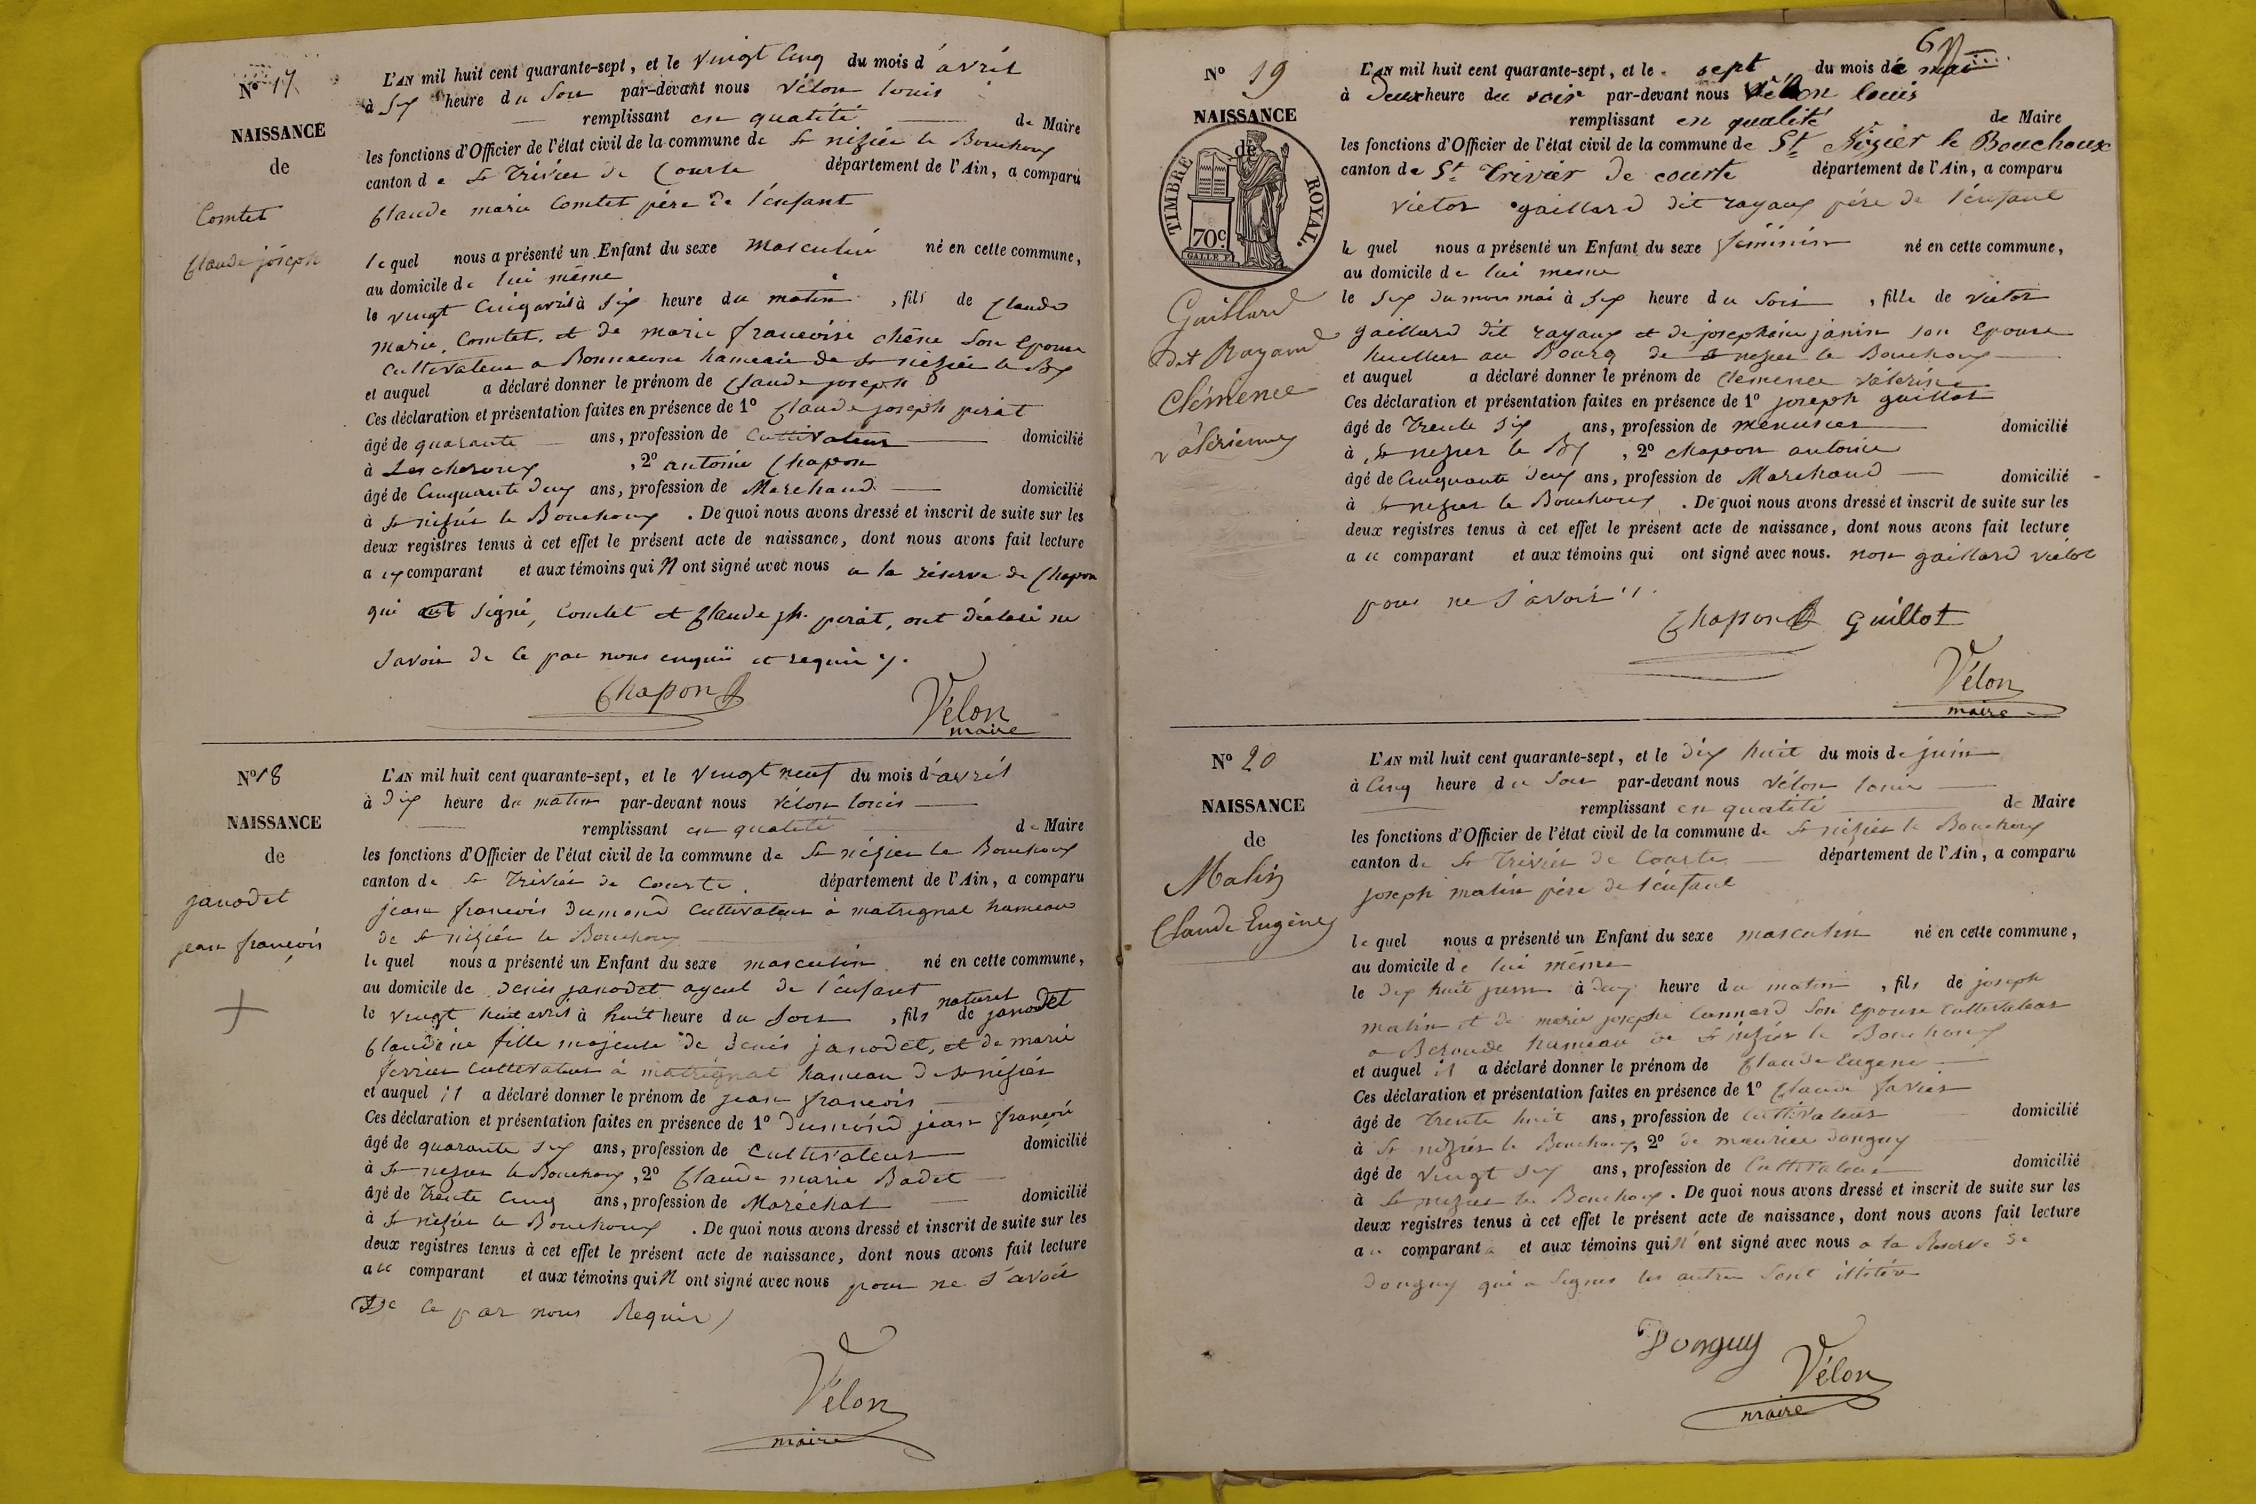 Nº 17
NAISSANCE
de
Comtet
Claude joseph
L'AN mil huit cent quarante-sept, et le vingt cinq du mois d'avril
à six heure du soir par-devant nous Vélon louis
remplissant en qualité de Maire
les fonctions d'Officier de l'état civil de la commune de St nizier le Bouchoux
canton de St Trivier de Courte département de l'Ain, a comparu
Claude marie Comtet père de l'enfant
lequel nous a présenté un Enfant du sexe masculin né en cette commune,
au domicile de lui même
le vingt cinq avril à six heure du matin, fils de Claude
marie Comtet, et de marie francoise chêne son Epouse
cultivateur a hameau de St nizier le Bx
et auquel a déclaré donner le prénom de Claude joseph
Ces déclaration et présentation faites en présence de 1º Claude joseph pirat
âgé de quarante ans, profession de cultivateur domicilié
à Lescheroux, 2º antoine Chapon
âgé de Cinquante deux ans, profession de Marchand domicilié
à St nizier le Bouchoux. De quoi nous avons dressé et inscrit de suite sur les
deux registres tenus à cet effet le présent acte de naissance, dont nous avons fait lecture
a comparant et aux témoins qui N ont signé avec nous a la réserve de Chapon
qui signé, Comtet et Claude jh. pirat, ont déclaré ne
Savoir de ce par nous enquis et requis.
Chapon
Vélon
maire
Nº 18
NAISSANCE
de
janodet
jean françois
L'AN mil huit cent quarante-sept, et le vingt neuf du mois d'avril
à dix heure du matin par-devant nous vélon louis
remplissant en qualité de Maire
les fonctions d'Officier de l'état civil de la commune de St nizier le Bouchoux
canton de St Trivier de Courte. département de l'Ain, a comparu
jean francois Dumond Cultivateur à matrignat hameau
de St nizier le Bouchoux
lequel nous a présenté un Enfant du sexe masculin né en cette commune,
au domicile de denis janodet ayeul de l'enfant
le vingt huit avril à huit heure du soir, fils naturel de janodet
Claudine fille majeure de denis janodet, et de marie
ferrier cultivateur à matrignat hameau de St nizier
et auquel il a déclaré donner le prénom de jean francois
Ces déclaration et présentation faites en présence de 1º Dumond jean françois
âgé de quarante six ans, profession de cultivateur domicilié
à St nizier le Bouchoux, 2º Claude marie Badet
âgé de Trente Cinq ans, profession de Maréchal domicilié
à St nizier le Bouchoux. De quoi nous avons dressé et inscrit de suite sur les
deux registres tenus à cet effet le présent acte de naissance, dont nous avons fait lecture
au comparant et aux témoins qui N ont signé avec nous pour ne Savoir
De ce par nous Requis
Vélon
maire
6
Nº 19
NAISSANCE
de
TIMBRE ROYAL.
70c
GALLE F.
Gaillard
dit Rayaud
Clémence
L'AN mil huit cent quarante-sept, et le sept du mois de mai
à Deux heure du soir par-devant nous Vélon louis
remplissant en qualité de Maire
les fonctions d'Officier de l'état civil de la commune de St Nizier le Bouchoux
canton de St Trivier De courte département de l'Ain, a comparu
Victor gaillard dit rayaux père de l'enfant
lequel nous a présenté un Enfant du sexe féminin né en cette commune,
au domicile de lui meme
le six du mois mai à six heure du soir, fille de victor
gaillard dit rayaux et de josephine janin son Epouse
au Bourg de St nizier le Bouchoux
et auquel a déclaré donner le prénom de clemence
Ces déclaration et présentation faites en présence de 1º joseph guillot
âgé de Trente six ans, profession de menusier domicilié
à St nizier le Bx, 2º chapon antoine
âgé de Cinquante deux ans, profession de Marchand domicilié
à St nizier le Bouchoux. De quoi nous avons dressé et inscrit de suite sur les
deux registres tenus à cet effet le présent acte de naissance, dont nous avons fait lecture
a ce comparant et aux témoins qui ont signé avec nous. non gaillard victor
pour ne savoir.
Chapon Guillot
Vélon
maire
Nº 20
NAISSANCE
de
Malin
Claude Eugène
L'AN mil huit cent quarante-sept, et le dix huit du mois de juin
à Cinq heure du soir par-devant nous vélon louis
remplissant en qualité de Maire
les fonctions d'Officier de l'état civil de la commune de St nizier le Bouchoux
canton de St Trivier de Courte département de l'Ain, a comparu
joseph malin père de l'enfant
lequel nous a présenté un Enfant du sexe masculin né en cette commune,
au domicile de lui même
le dix huit juin à deux heure du matin, fils de joseph
malin et de marie josephe Connard son epouse cultivateur
a hameau de St nizier le Bouchoux
et auquel il a déclaré donner le prénom de Claude Eugene
Ces déclaration et présentation faites en présence de 1º Claude favier
âgé de Trente huit ans, profession de cultivateur domicilié
à St nizier le Bouchoux, 2º de maurice donguy
âgé de vingt six ans, profession de Cultivateur domicilié
à St nizier le Bouchoux. De quoi nous avons dressé et inscrit de suite sur les
deux registres tenus à cet effet le présent acte de naissance, dont nous avons fait lecture
au comparant et aux témoins qui N'ont signé avec nous a la Reserve de
donguy qui a signes les autres sont
Donguy
Vélon
maire